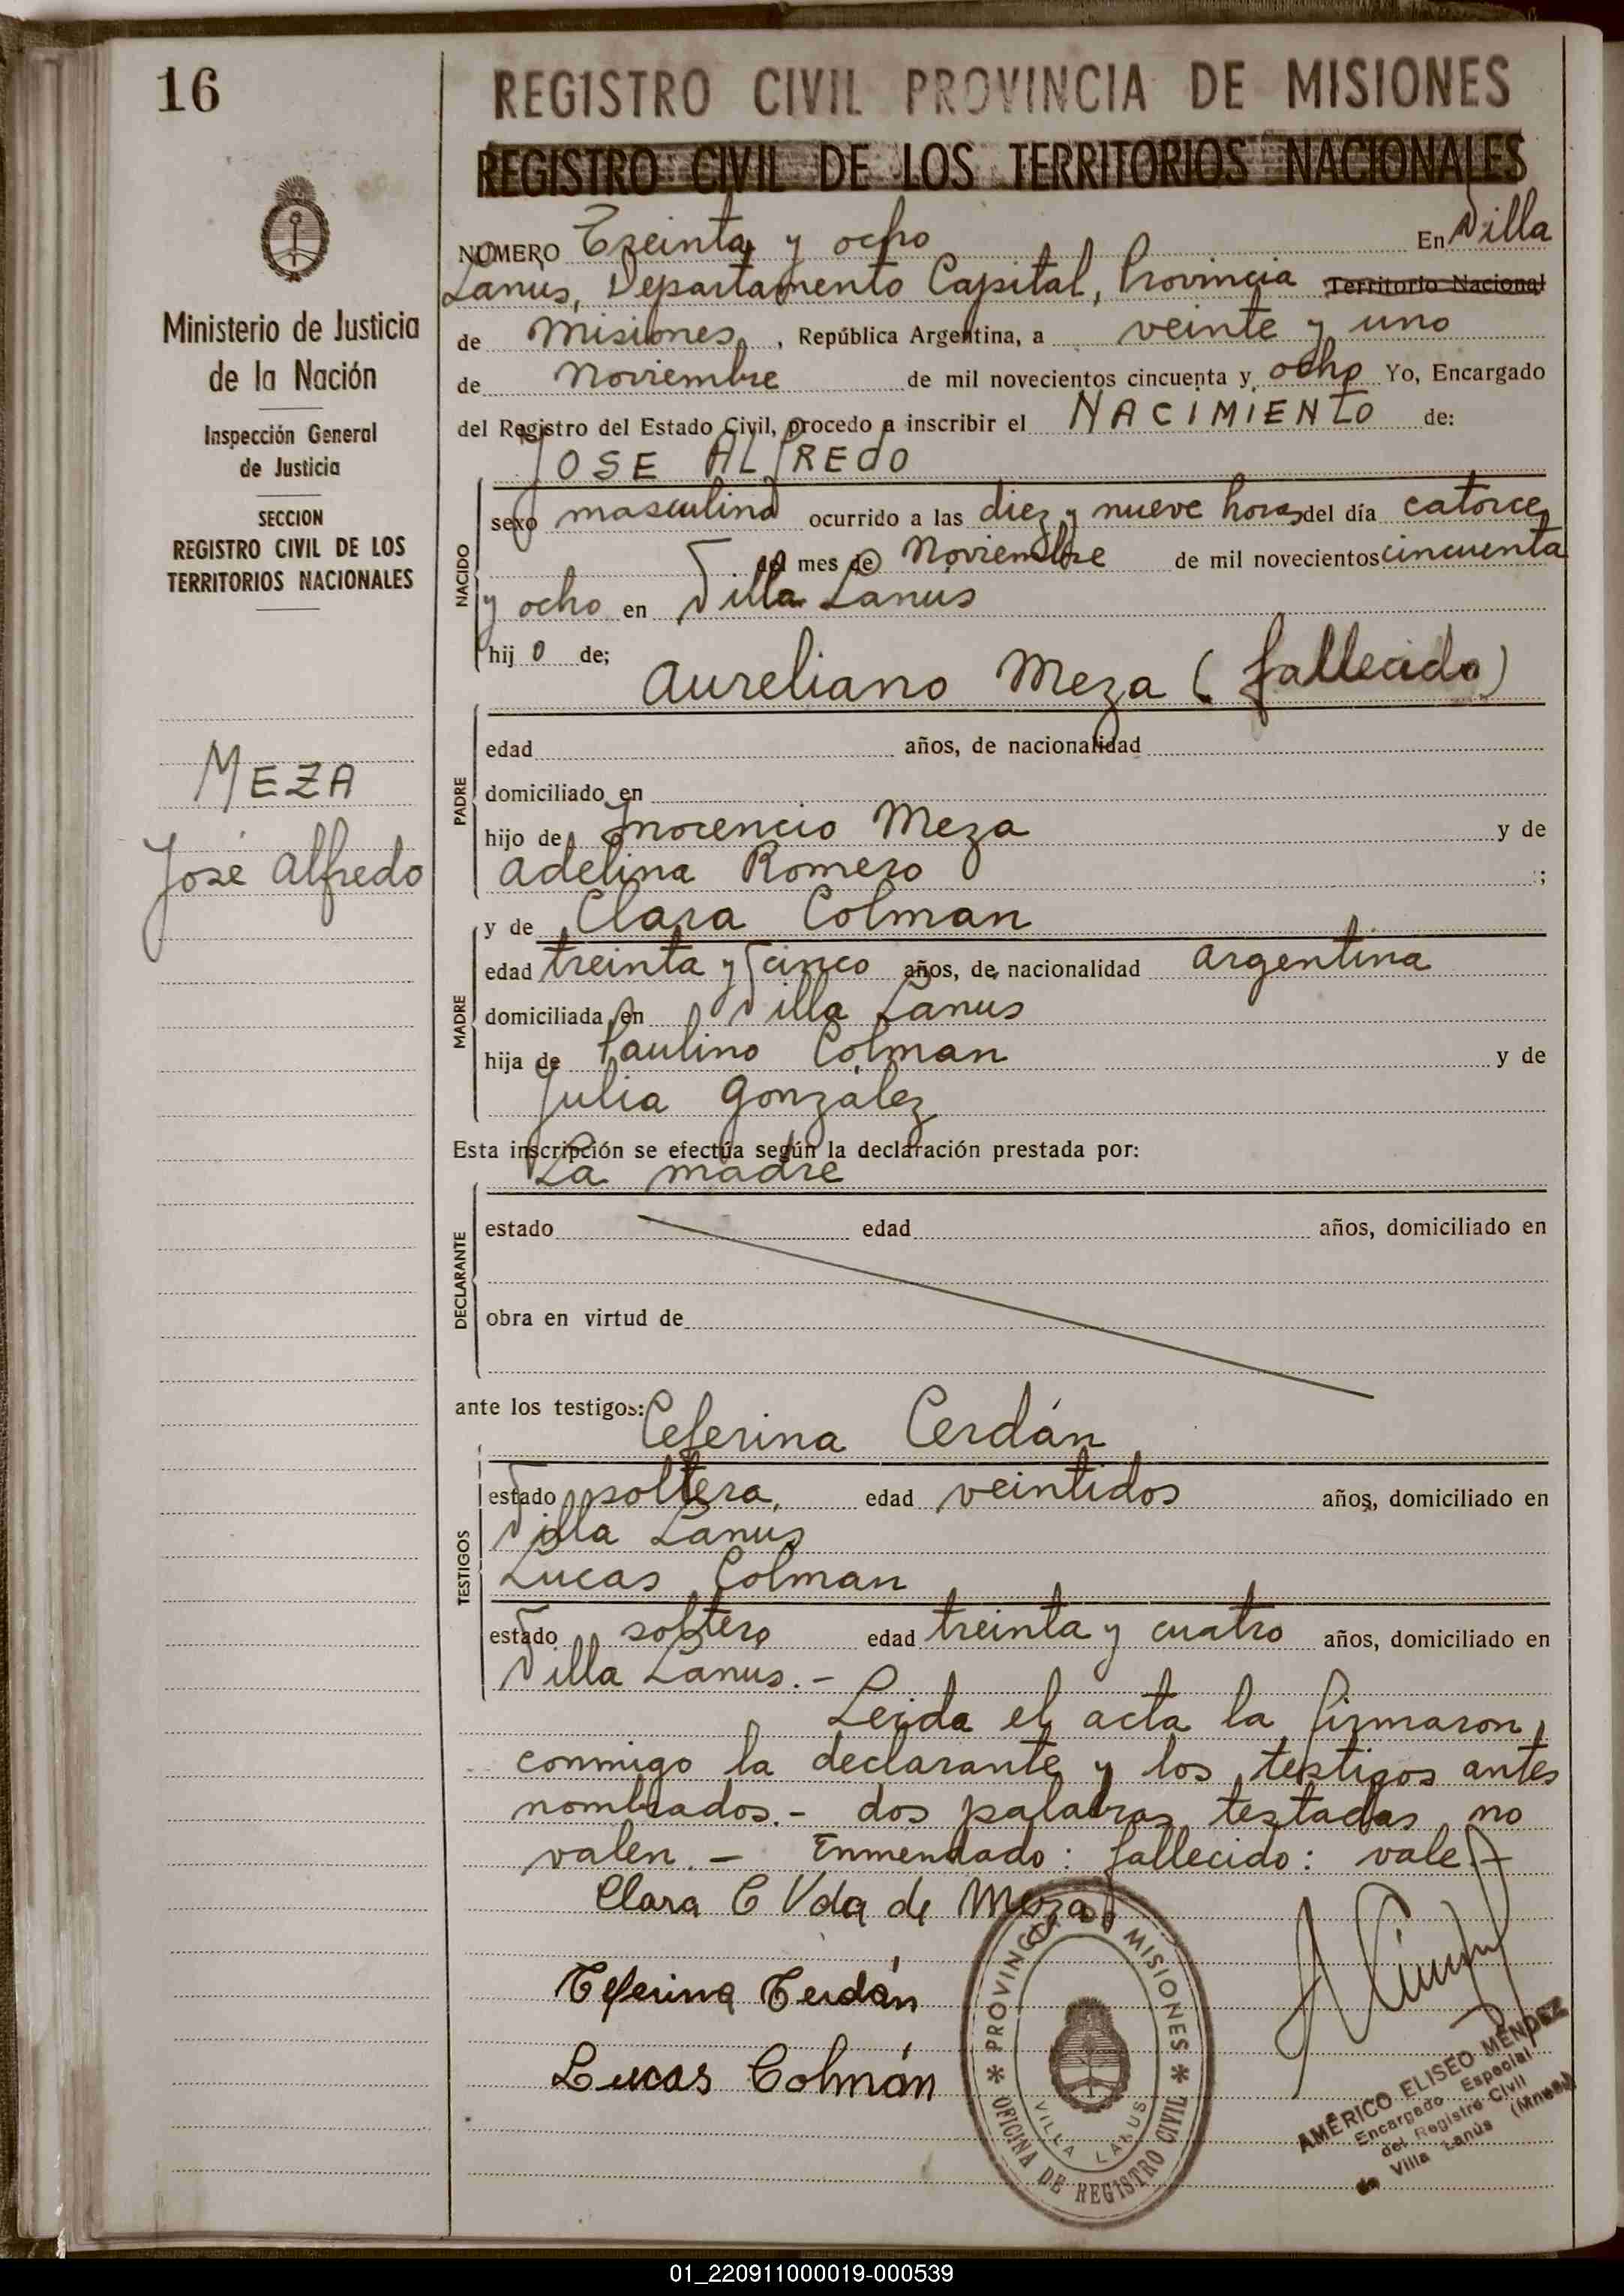 16
Ministerio de Justicia
de la Nación
Inspección General
de Justicia
SECCION
REGISTRO CIVIL DE LOS
TERRITORIOS NACIONALES
MEZA
José Alfredo
REGISTRO CIVIL PROVINCIA DE MISIONES
REGISTRO CIVIL DE LOS TERRITORIOS NACIONALES
NUMERO Treinta y ocho En Villa
Lanús, Departamento Capital, Provincia Territorio Nacional
de Misiones, República Argentina, a veinte y uno
de Noviembre de mil novecientos cincuenta y ocho Yo, Encargado
del Registro del Estado Civil, procedo a inscribir el NACIMIENTO de:
JOSE ALFREDO
NACIDO
sexo masculino ocurrido a las diez y nueve horas del día catorce
del mes de Noviembre de mil novecientos cincuenta
y ocho en Villa Lanus
hijo de;
Aureliano Meza (fallecido)
PADRE
edad años, de nacionalidad
domiciliado en
hijo de Inocencio Meza y de
Adelina Romero ;
y de Clara Colman
MADRE
edad treinta y cinco años, de nacionalidad argentina
domiciliada en Villa Lanus
hija de Paulino Colman y de
Julia González
Esta inscripción se efectúa según la declaración prestada por:
La madre
DECLARANTE
estado edad años, domiciliado en
obra en virtud de
ante los testigos:
Ceferina Cerdán
TESTIGOS
estado soltera, edad veintidos años, domiciliado en
Villa Lanus
Lucas Colman
estado soltero edad treinta y cuatro años, domiciliado en
Villa Lanus.-
Leida el acta la firmaron
conmigo la declarante y los testigos antes
nombrados.- dos palabras testadas no
valen.- Enmendado: fallecido: vale.-
Clara C Vda de Meza
Ceferina Cerdán
Lucas Colmán
PROVINCIA DE MISIONES
VILLA LANUS
OFICINA DE REGISTRO CIVIL
AMÉRICO ELISEO MÉNDEZ
Encargado Especial
del Registro Civil
de Villa Lanús (Mnes.)
01_220911000019-000539